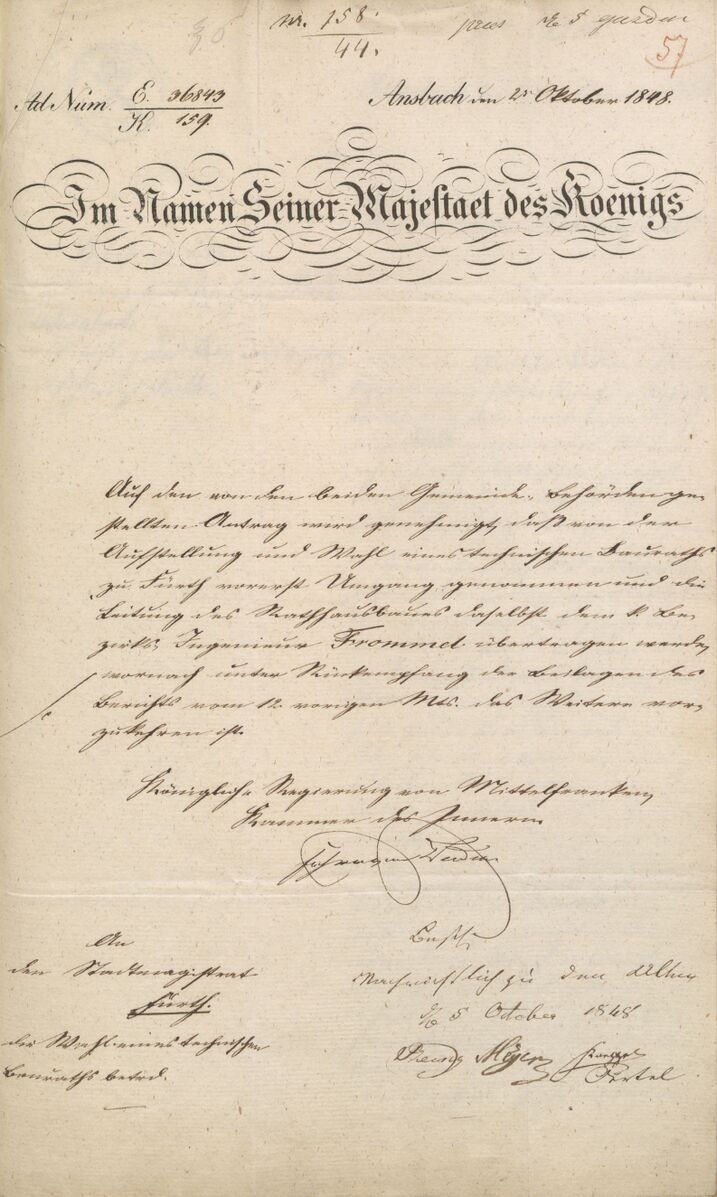 Nr. 158.
44.
57
Ad Num. E. 36843
K. 159.
Ansbach den 2 Oktober 1848.
Im Namen Seiner Majestaet des Koenigs
Auf den von den beiden Gemeinde-Behörden ge-
stellten Antrag wird genehmigt, daß von der
Aufstellung und Wahl eines technischen Bauraths
zu Fürth vorerst Umgang genommen und die
Leitung des Rathhausbaues daselbst dem k. Be-
zirks-Ingenieur Frommel übertragen werde,
wornach unter Rückempfang der Beilagen des
Berichts vom 12. vorigen Mts. das Weitere vor-
zukehren ist.
Königliche Regierung von Mittelfranken,
Kammer des Innern.
An
den Stadtmagistrat
Fürth.
die Wahl eines technischen
Bauraths betrd.
Beschl.
Nachrichtlich zu den Akten
5 October 1848
Meyer